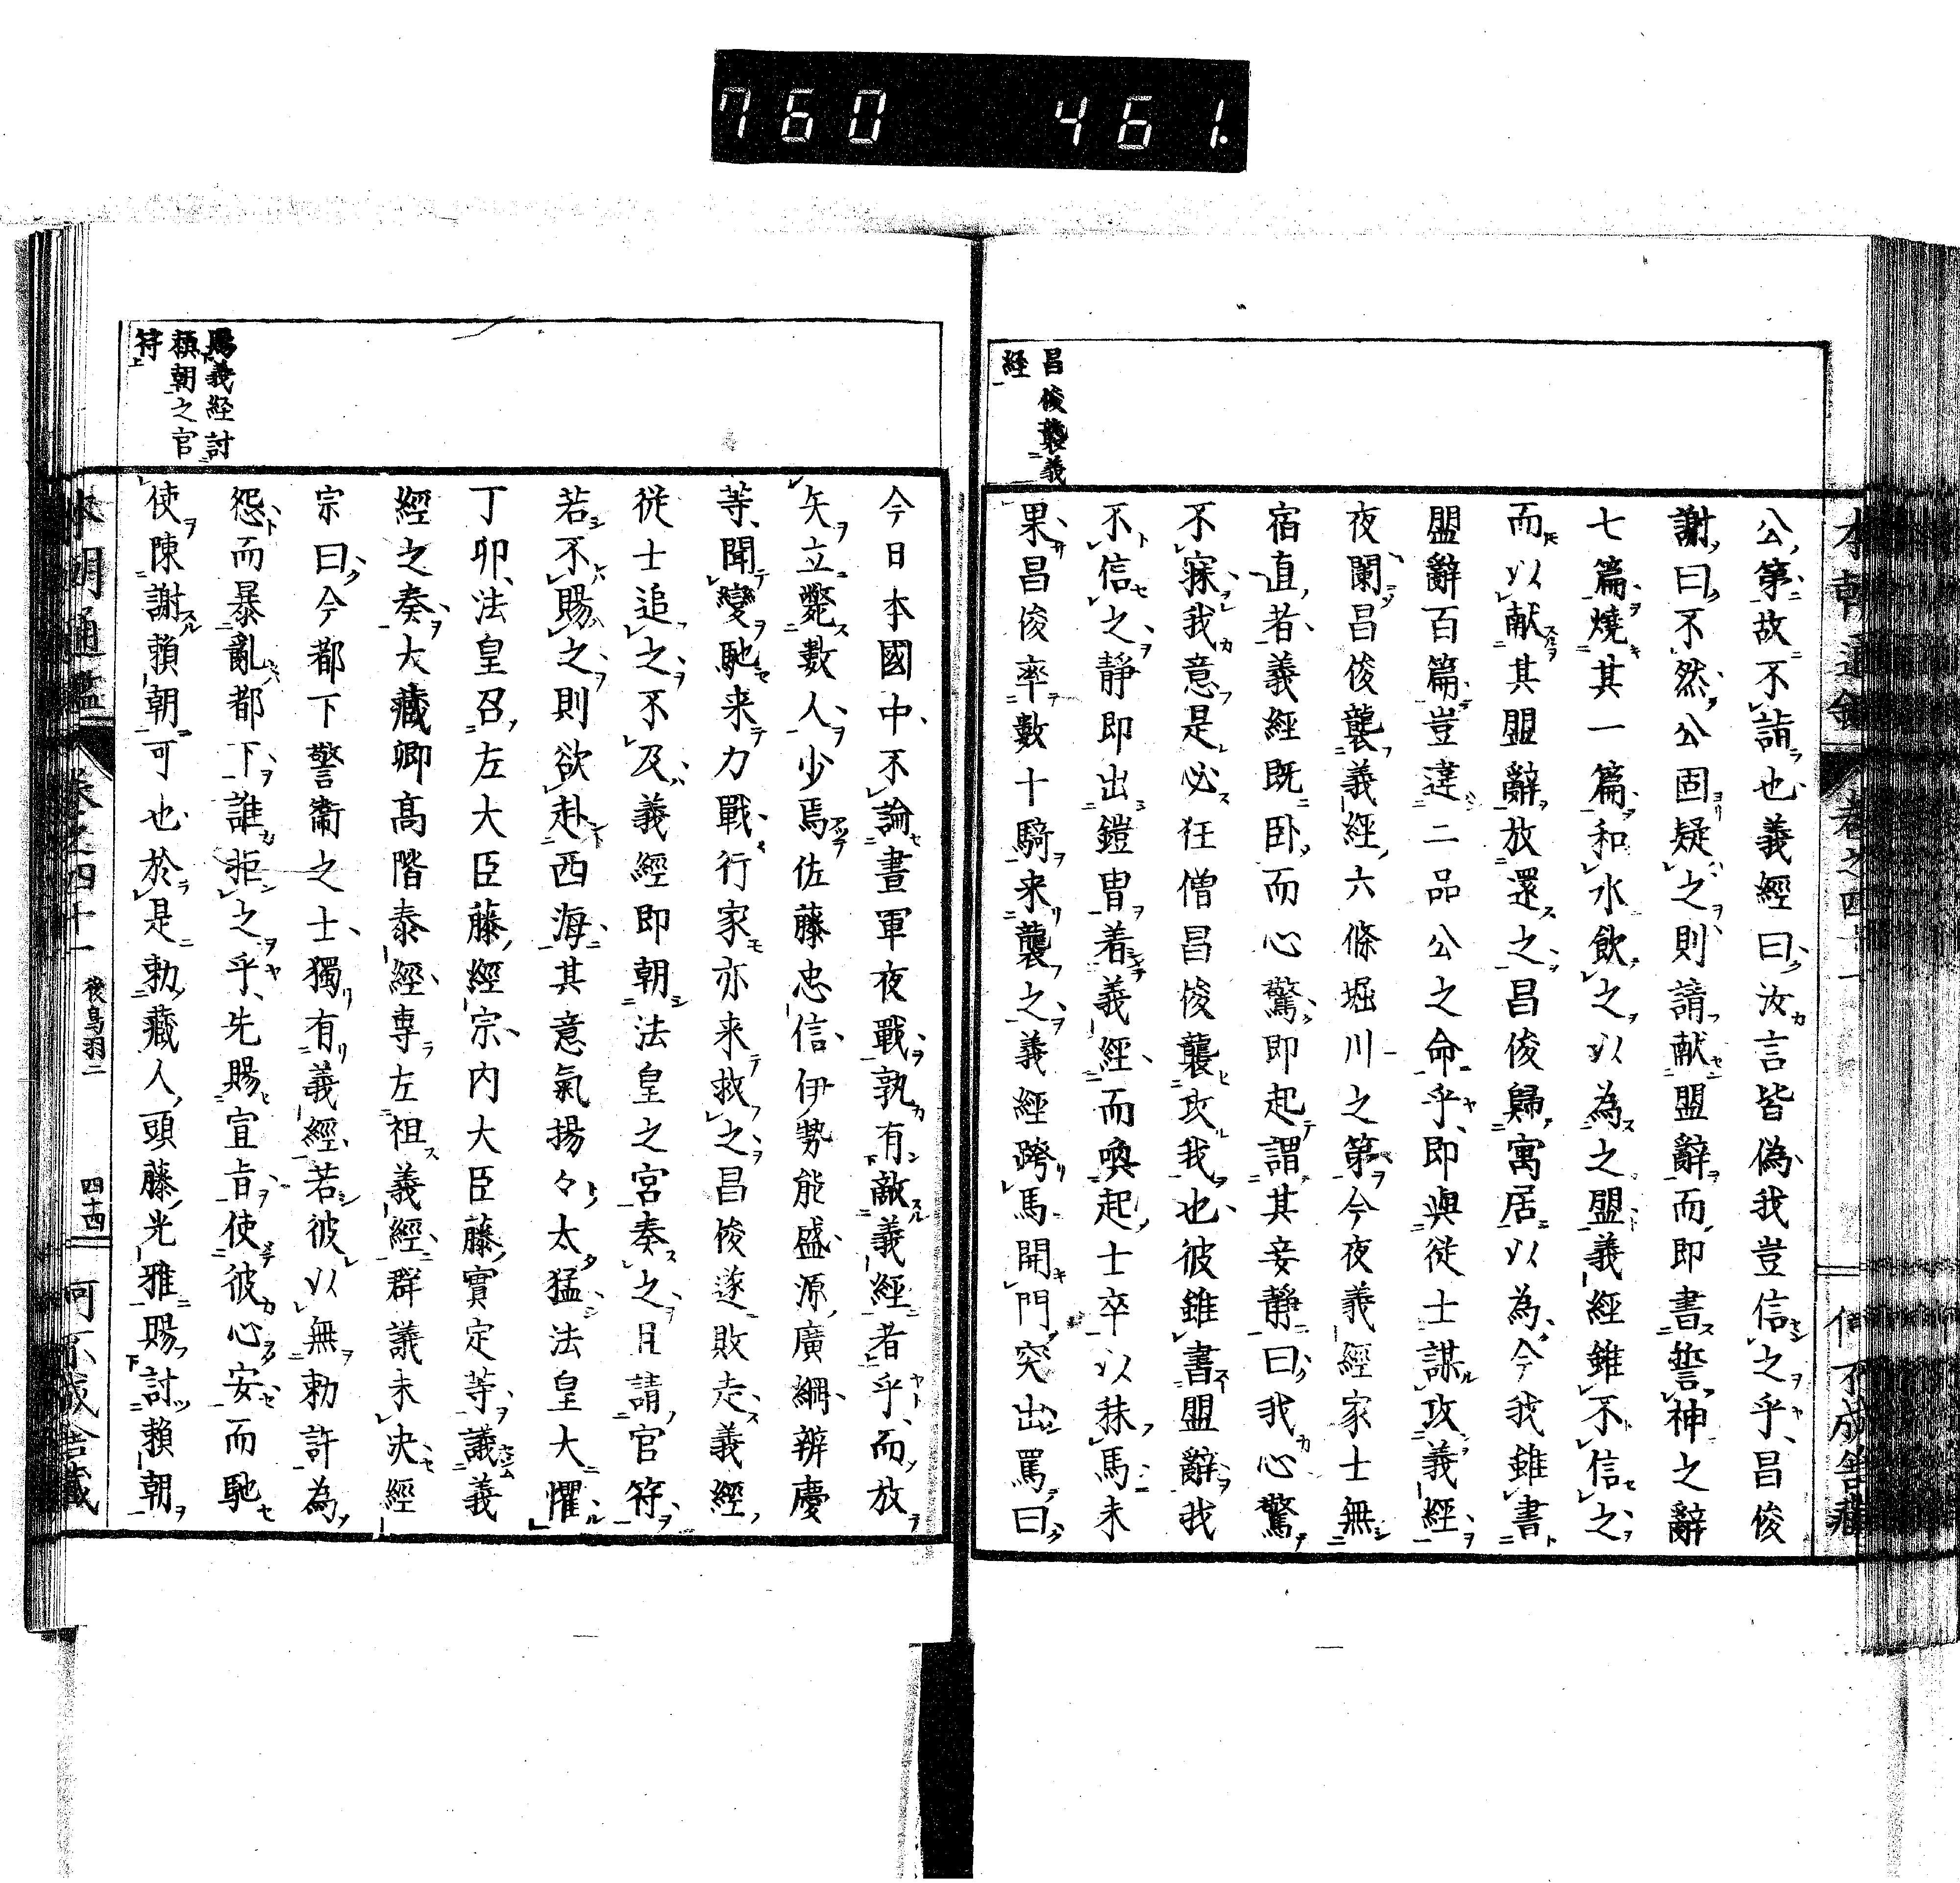 760 461.
昌俊襲義
経
公第故不詣也義經曰汝言皆偽我豈信之乎昌俊
謝曰不然公固疑之則請献盟辭而即書誓神之辭
七篇燒其一篇和水飲之以為之盟義經雖不信之
而以献其盟辭放還之昌俊歸寓居以為今我雖書
盟辭百篇豈違二品公之命乎即與従士謀攻義經
夜闌昌俊襲義經六條堀川之第今夜義經家士無
宿直者義經既臥而心驚即起謂其妾靜曰我心驚
不寐我意是必狂僧昌俊襲攻我也彼雖書盟辭我
不信之靜即出鎧冑着義經而喚起士卒以秣馬未
果昌俊率數十騎来襲之義經跨馬開門突出罵曰
今日本國中不論晝軍夜戰孰有敵義經者乎而放
矢立斃數人少焉佐藤忠信伊勢能盛源廣綱辨慶
等聞變馳来力戰行家亦来救之昌俊遂敗走義經
従士追之不及義經即朝法皇之宮奏之且請官符
若不賜之則欲赴西海其意氣揚々太猛法皇大懼
丁卯法皇召左大臣藤經宗内大臣藤實定等議義
經之奏大藏卿高階泰經専左袒義經群議未決經
宗曰今都下警衞之士獨有義經若彼以無勅許為
怨而暴亂都下誰拒之乎先賜宣旨使彼心安而馳
使陳謝賴朝可也於是勅藏人頭藤光雅賜討賴朝
賜義経討
頼朝之官
符
本朝通鑑 卷之四十一 後鳥羽二 四十四